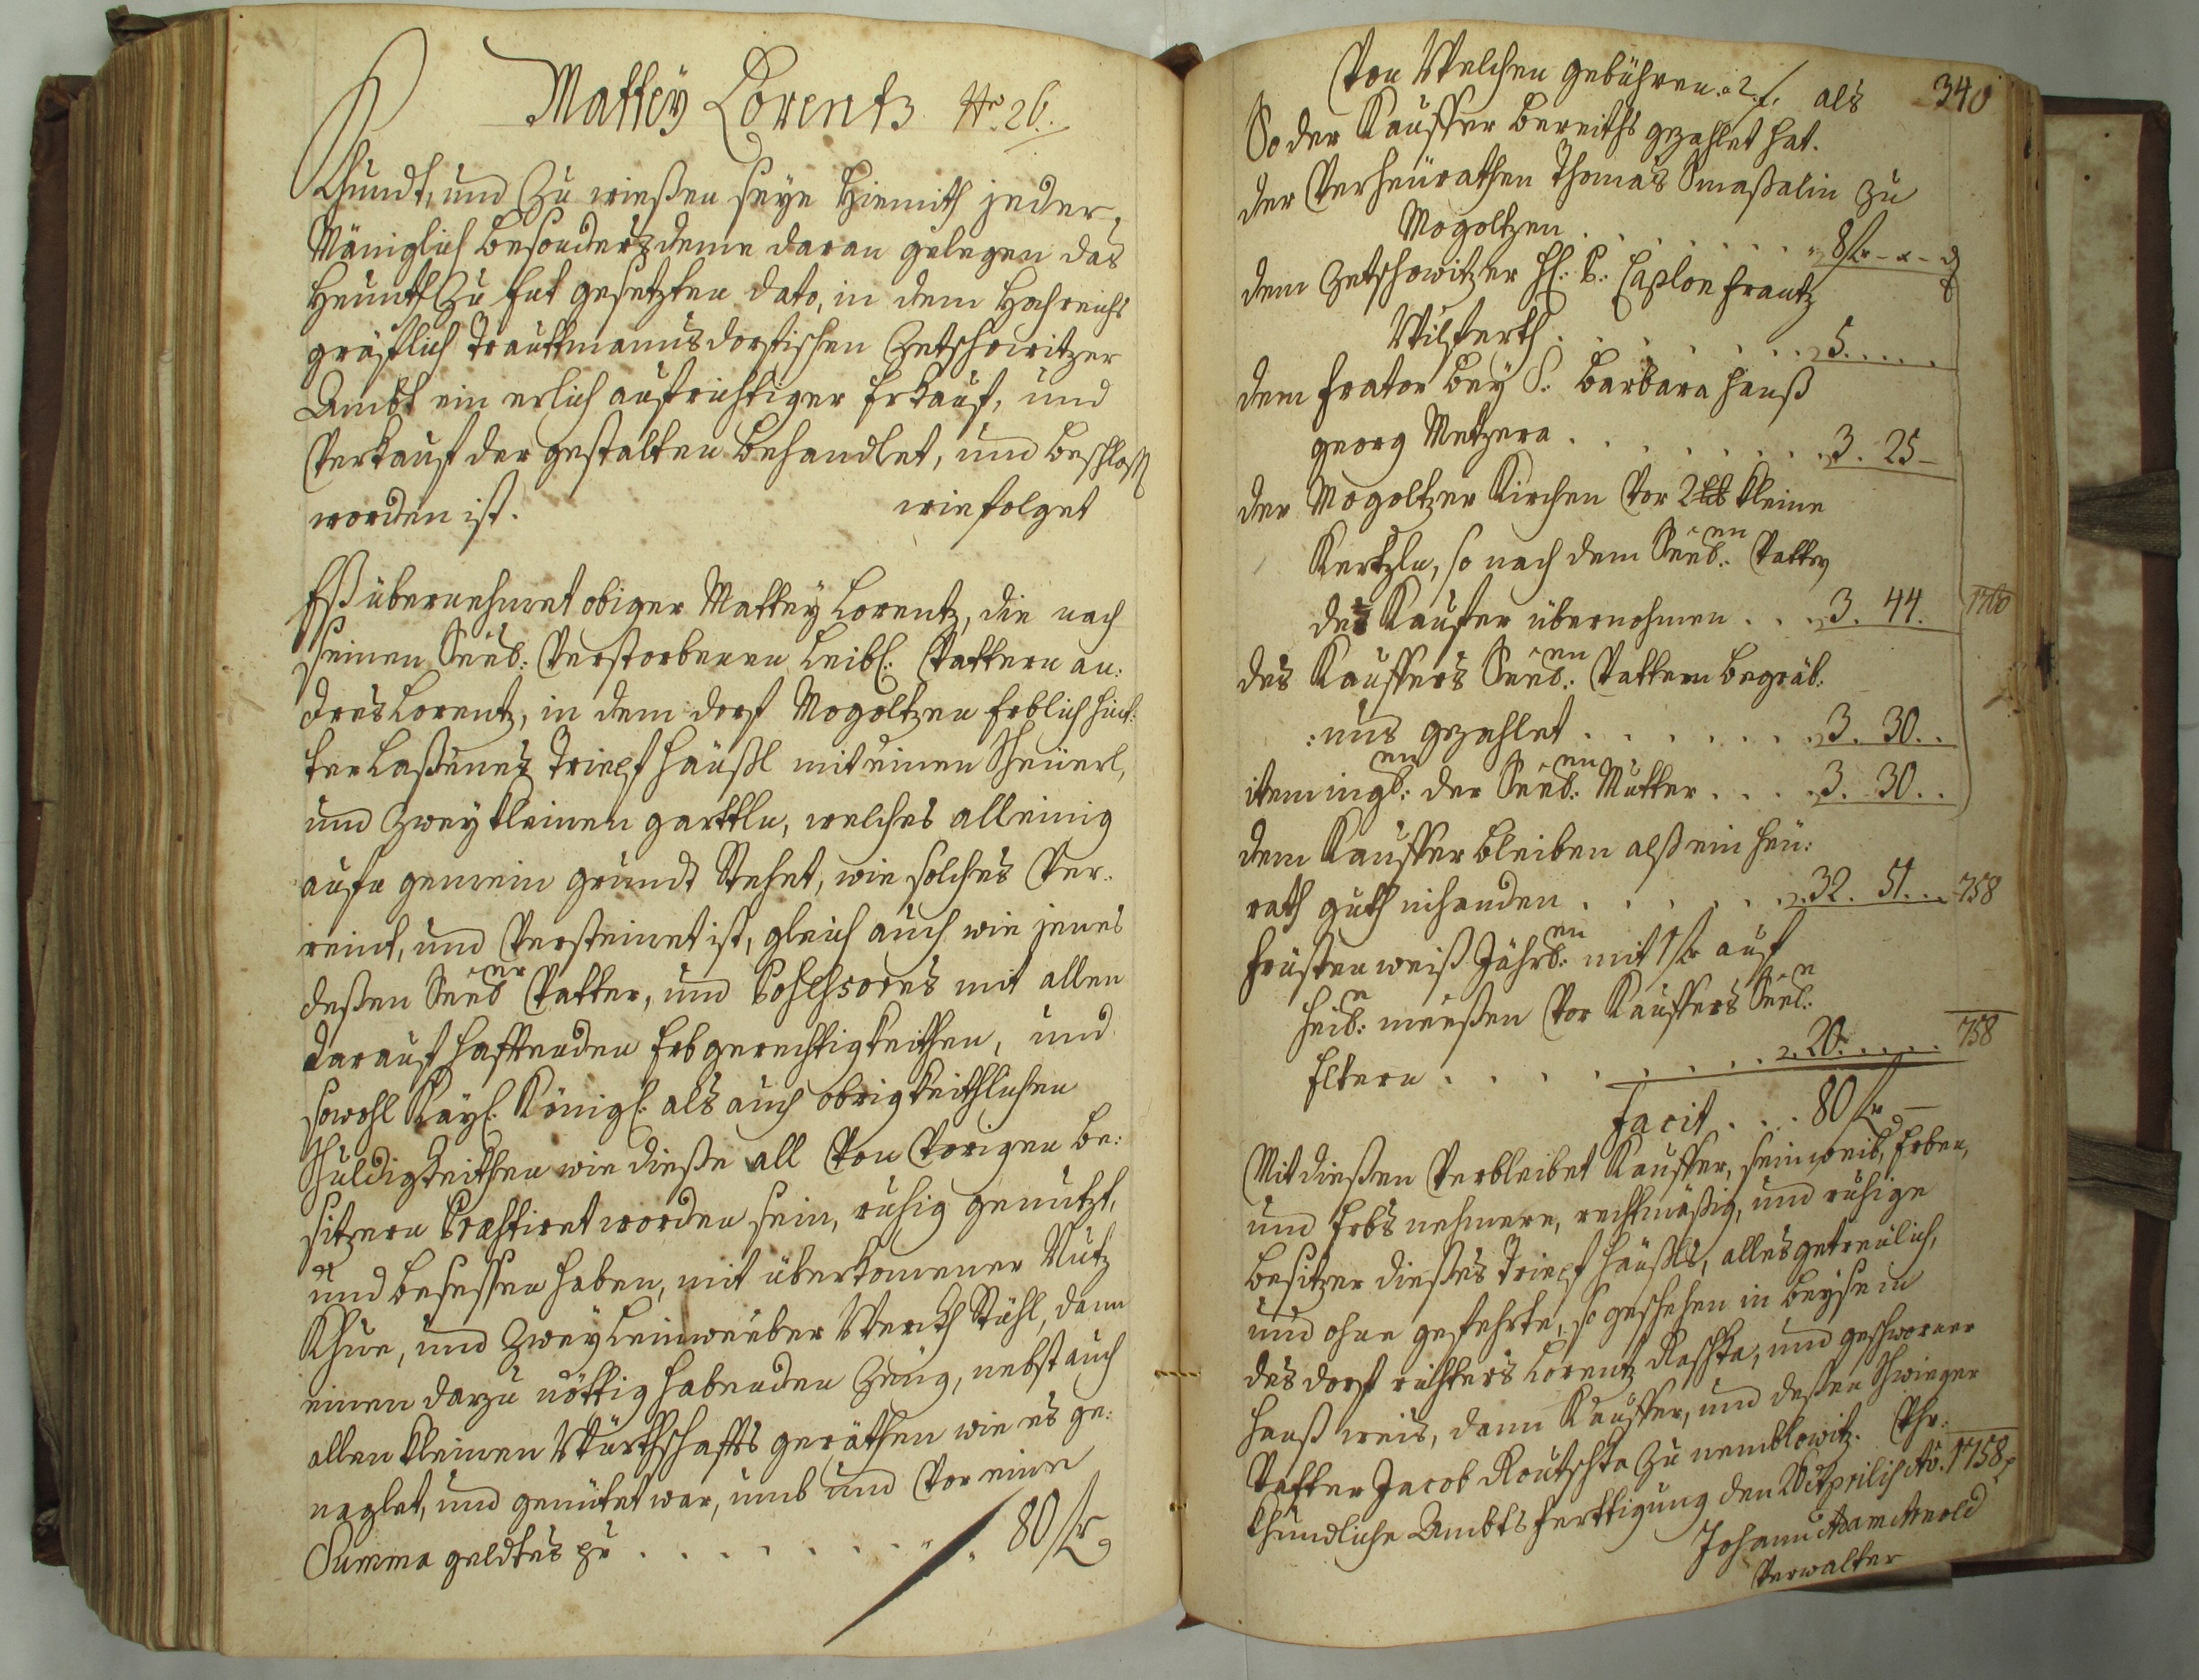 Mattey Lorentz No 26.
Khundt, und Zu wießen seye Hiemith jeder,
Mäniglich besonders deme daran gelegen das
Heuntt Zu End gesetzten dato, in dem Hochreichs
gräfflich Trauttmannsdorfischen Zetschowitzer
Ambt ein erlich aufrichtiger Erkauf, und
Verkauf der gestalten behandlet, und beschloss
worden ist. wie folget
Eß übernehmet obiger Mattey Lorentz, die nach
seinen Seeb: Verstorbenen Leibl: Vattern an:
dres Lorentz, in dem dorf Mogoltzen Erblich hint:
terlaßenes Triepf häußl mit einen Scheüerl,
und Zwey kleinen garttln, welches alleinig
aufn gemein grundt Stehet, wie solches Ver:
reint, und Versteinet ist, gleich auch wie jenes
deßen Seeber Vatter, und mit allen
darauf hafftenden Erbgerechtigkeithen, und
sowohl Kayl: Königl: als auch obrigkeithlichen
Schuldigkeithen wie dieße all Von Vorigen be:
sitzern Præstiret worden sein, ruhig genutzt,
und besessen haben, mit überkomener Nutz
Khue, und Zwey Leinweeber Werckh Stühl, dann
einen darzu nöttig habenden Zeüg, nebst auch
allen kleinen Würthschaffts geräthen wie es ge:
naglet, und genütet war, umb und Vor eine
Summa geldtes pr . . . . . . . . 80 fr
340
Von Welchen gebühren: 2 f. als
So der Kauffer bereiths gezahlet hat.
der Verheürathen Thomas Smaßalin zu
Mogoltzen . . . . . . . . 8 fr - x - d
dem Zetschowitzer H: P: Caplon Frantz
Wilferth . . . . . . . . 5. . . . .
dem Frater bey S: Barbara Hanß
georg Metzera . . . . . . . 3. 25 -
der Mogoltzer Kirchen Vor 2 kleine
Kertzln, so nach dem Seeb:en Vatter
der Kaufer übernohmen . . . 3. 44.
des Kauffers Seeb:en Vattern begräb:
:nus gezahlet . . . . . . . 3. 30. .
item ingb:en der Seeb:en Mutter . . . 3. 30. .
dem Kauffer bleiben alß ein Heü:
rath guth inhanden . . . . . . 32. 51. . . 758
Früsten weiß Jährb:en mit 1 fr auf
Heib:n meeßen Vor Kauffers Seel:n
Eltern . . . . . . . . 20. . . . . 758
Facit . . . 80 fr —
Mit dießen Verbleibet Kauffer, sein weib, Erben,
und Erbs nehmere, rechtmäßig, und ruhige
besitzer dießes Triepf häußls, alles getreülich,
und ohne gefehrte, so geschehen in beysein
des dorf richters Lorentz Raschka, und geschworner
Hanß weis, dann Kauffer, und deßen Schwieger
Vatter Jacob Koutschka Zu nemblowitz. Uhr:
khundliche Ambts fertigung den Aprilis Ao. 1758
Johann Adam Arnold
Verwalter